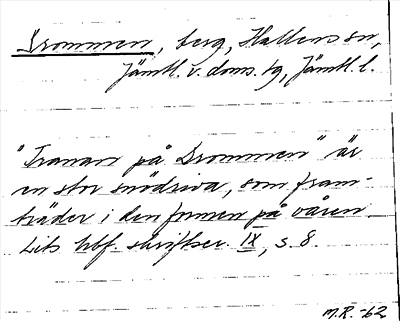 Drommen, berg, Hallens sn,
Jämtl. v. doms. tg, Jämtl. l.
"Tranan på Drommen" är
en stor snödriva, som fram-
träder i den formen på våren.
Lits hbf. skriftser. IX, s. 8.
M.R. -62